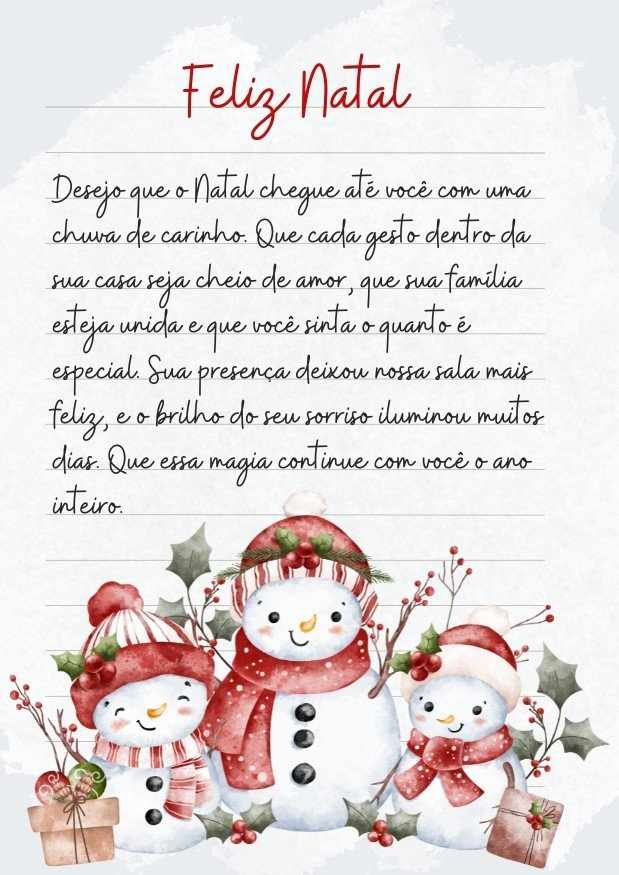 Feliz Natal
Desejo que o Natal chegue até você com uma
chuva de carinho. Que cada gesto dentro da
sua casa seja cheio de amor, que sua família
esteja unida e que você sinta o quanto é
especial. Sua presença deixou nossa sala mais
feliz, e o brilho do seu sorriso iluminou muitos
dias. Que essa magia continue com você o ano
inteiro.